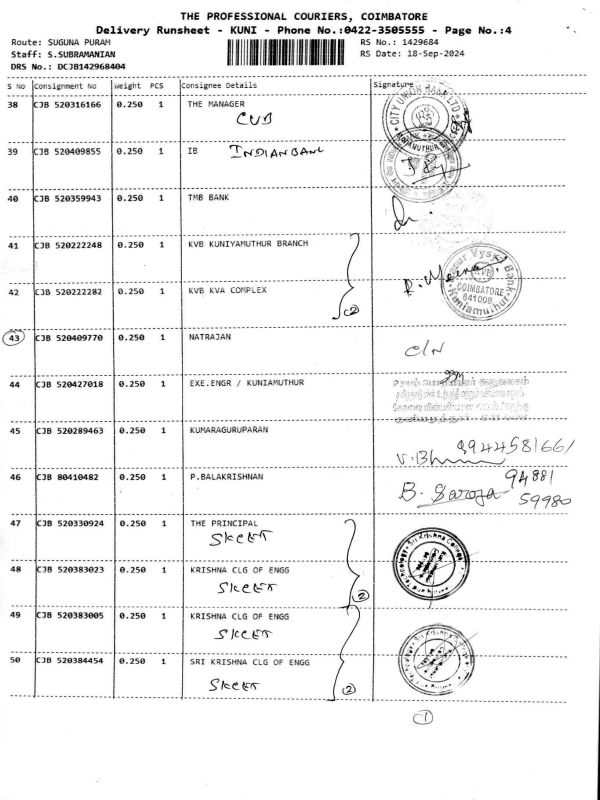 THE PROFESSIONAL COURIERS, COIMBATORE
Delivery Runsheet - KUNI - Phone No.:0422-3505555 - Page No.:4
Route: SUGUNA PURAM
RS No.: 1429684
Staff: S.SUBRAMANIAN
RS Date: 18-Sep-2024
DRS No.: DCJB142968404
S No Consignment No Weight PCS Consignee Details Signature
38 CJB 520316166 0.250 1 THE MANAGER
CUB
CITY UNION BANK LTD
39 CJB 520409855 0.250 1 IB INDIAN BANK
40 CJB 520359943 0.250 1 TMB BANK
41 CJB 520222248 0.250 1 KVB KUNIYAMUTHUR BRANCH
42 CJB 520222282 0.250 1 KVB KVA COMPLEX
②
R. Meena
Vysya Bank
KVB
COIMBATORE
641008
Kuniamuthur
43 CJB 520409770 0.250 1 NATRAJAN
C/N
44 CJB 520427018 0.250 1 EXE.ENGR / KUNIAMUTHUR
45 CJB 520289463 0.250 1 KUMARAGURUPARAN
9944581661
46 CJB 80410482 0.250 1 P.BALAKRISHNAN
B. Saroja 94881
59980
47 CJB 520330924 0.250 1 THE PRINCIPAL
SKCET
48 CJB 520383023 0.250 1 KRISHNA CLG OF ENGG
SKCET
②
Sri Krishna College
49 CJB 520383005 0.250 1 KRISHNA CLG OF ENGG
SKCET
50 CJB 520384454 0.250 1 SRI KRISHNA CLG OF ENGG
SKCET
②
①